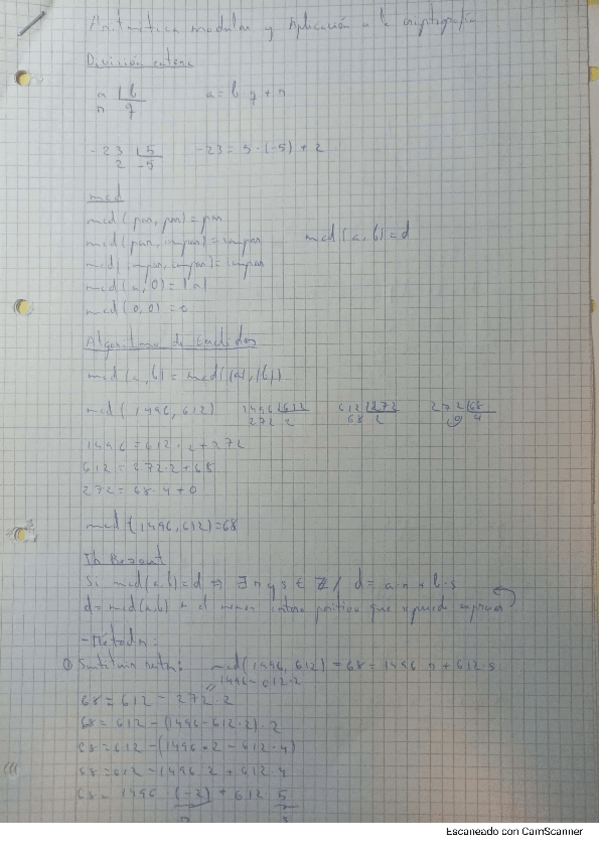 Aritmética modular y Aplicación a la criptografía
División entera
a | b     a = b q + r
r   q
-23 | 5     -23 = 5 · (-5) + 2
2   -5
mcd
mcd (par, par) = par
mcd (par, impar) = impar     mcd (a, b) = d
mcd (impar, impar) = impar
mcd (a, 0) = |a|
mcd (0, 0) = 0
Algoritmo de Euclides
mcd (a, b) = mcd (|a|, |b|)
mcd (1496, 612)   1496 | 612   612 | 272   272 | 68
272 2   68 2   0 4
1496 = 612 · 2 + 272
612 = 272 · 2 + 68
272 = 68 · 4 + 0
mcd (1496, 612) = 68
Th Bezout
Si mcd (a, b) = d ⇒ ∃ r y s ∈ Z / d = a · r + b · s
d = mcd (a, b) el menor entero positivo que puede expresar
- Métodos:
① mcd (1496, 612) = 68 = 1496 r + 612 · s
1496 - 612 · 2
68 = 612 - 272 · 2
68 = 612 - (1496 - 612 · 2) · 2
68 = 612 - (1496 · 2 - 612 · 4)
68 = 612 - 1496 · 2 + 612 · 4
68 = 1496 · (-2) + 612 · 5
r   s
Escaneado con CamScanner